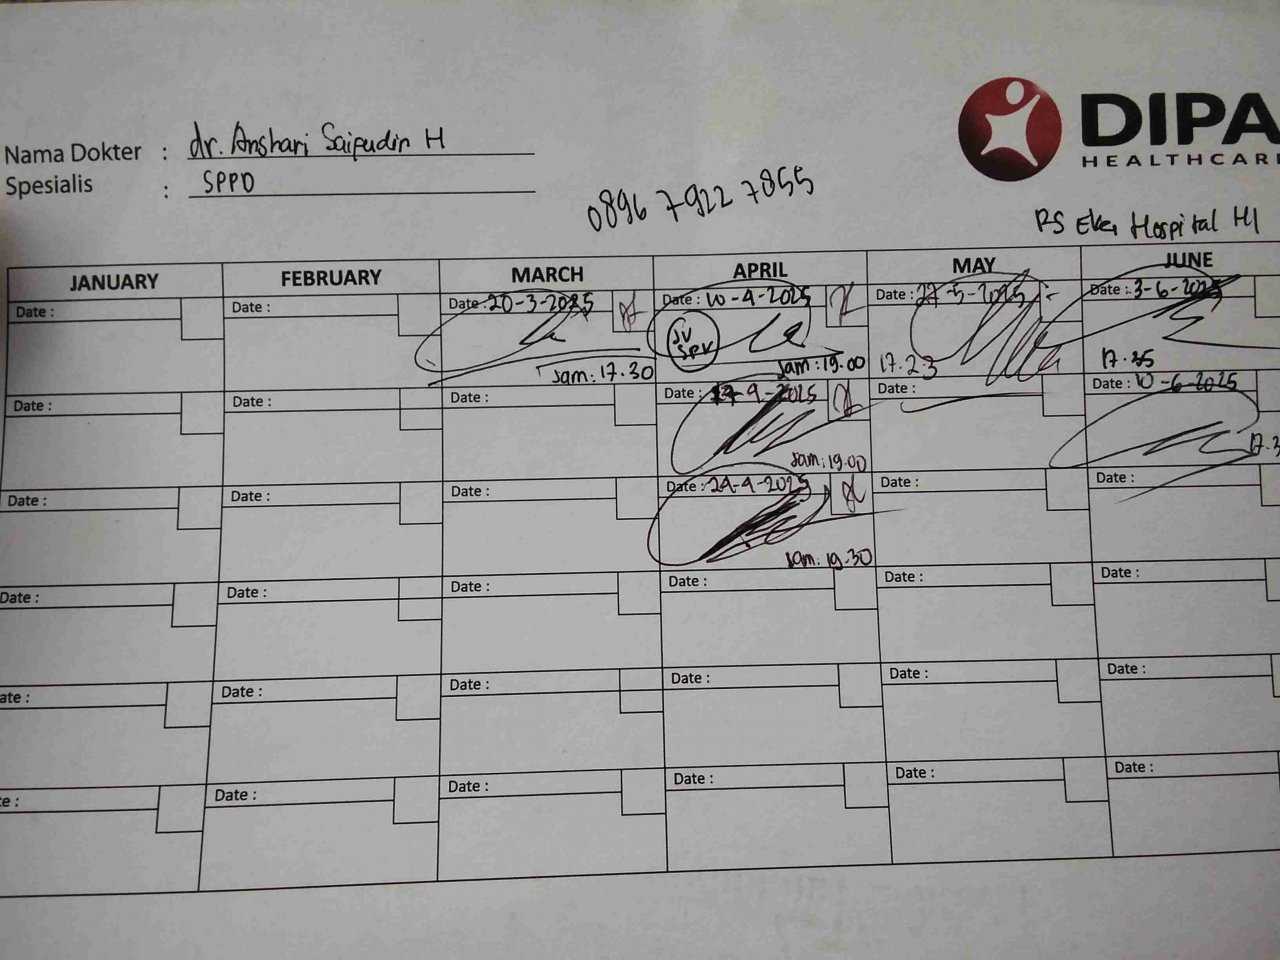 DIPA
HEALTHCARE
Nama Dokter : dr. Anshari Saipudin H
Spesialis : SPPD
0896 7922 7855
RS Eka Hospital HI
JANUARY FEBRUARY MARCH APRIL MAY JUNE
Date : Date : Date : 20-3-2025 Date : 10-4-2025 Date : 27-5-2025 Date : 3-6-2025
JV
SPV
Jam : 17.30 Jam : 19.00 17.23 17.35
Date : Date : Date : Date : 17-4-2025 Date : Date : 10-6-2025
Jam : 19.00 17.3
Date : Date : Date : Date : 24-4-2025 Date : Date :
Jam : 19.30
Date : Date : Date : Date : Date : Date :
ate : Date : Date : Date : Date : Date :
te : Date : Date : Date : Date : Date :